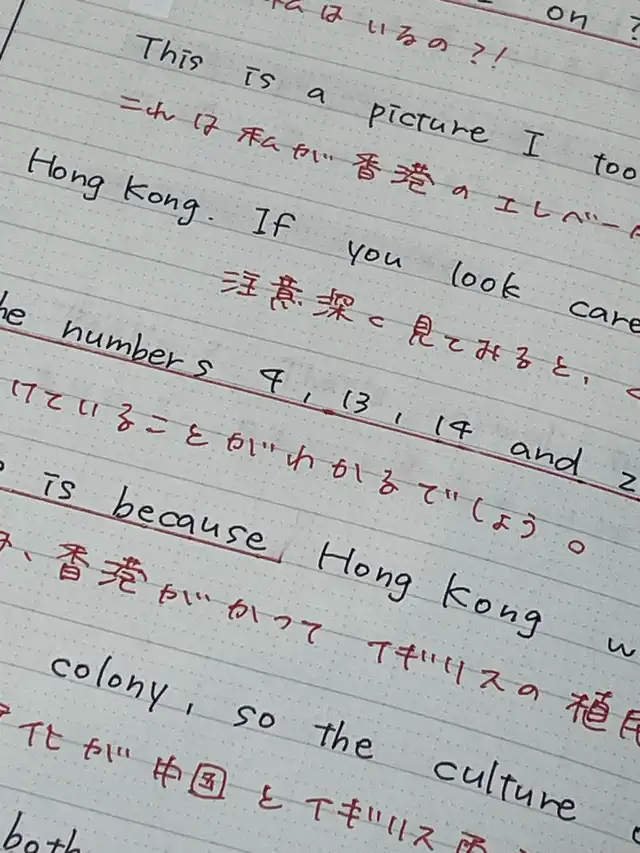 on?
私はいるの?!
This is a picture I
これは私が香港のエレベー
Hong Kong. If you look
注意深く見てみると、
numbers 4, 13, 14 and
けていることがわかるでしょう。
is because Hong Kong
、香港がかつてイギリスの植
colony, so the culture
化が中国とイギリス両
both